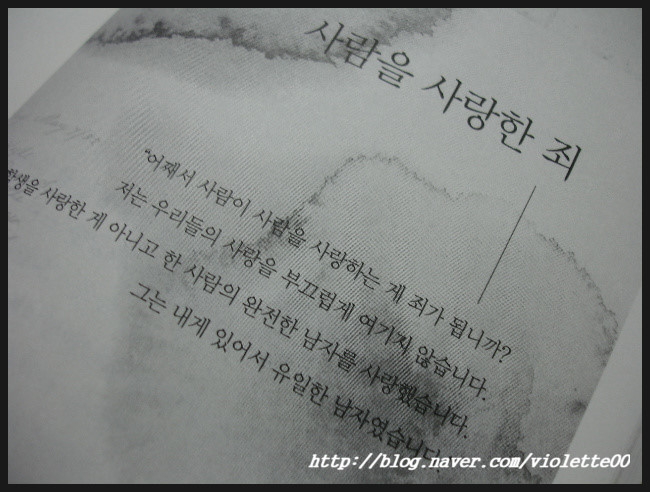 사람을 사랑한 죄
"어째서 사람이 사람을 사랑하는 게 죄가 됩니까?
저는 우리들의 사랑을 부끄럽게 여기지 않습니다.
학생을 사랑한 게 아니고 한 사람의 완전한 남자를 사랑했습니다.
그는 내게 있어서 유일한 남자였습니다.
http://blog.naver.com/violette00